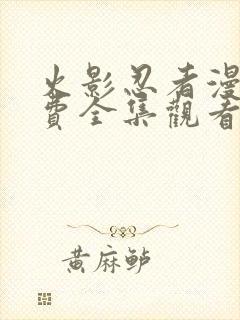 火影忍者漫
費全集觀看
黄麻鲈